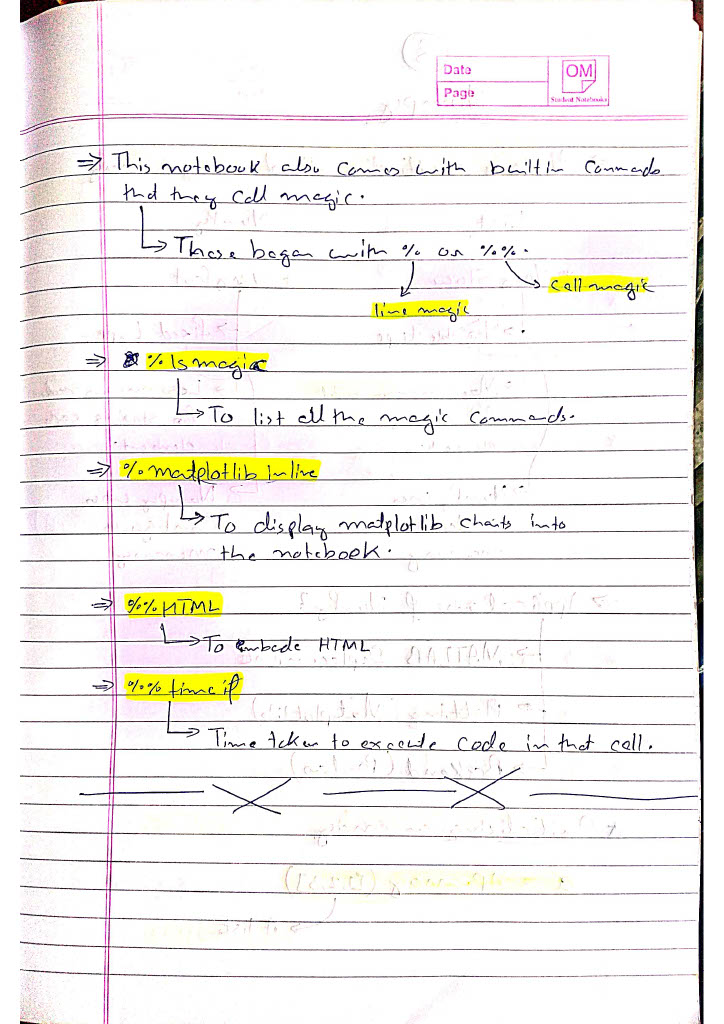 Date
OM
Page
Student Notebooks
⇒ This notebook also comes with builtin Commands
that they call magic.
↳ These began with % or %%.
cell magic
line magic
⇒ % lsmagic
↳ To list all the magic Commands.
⇒ % matplotlib inline
↳ To display matplotlib charts into
the notebook.
⇒ %% HTML
↳ To embede HTML
⇒ %% timeit
↳ Time taken to execute code in that cell.